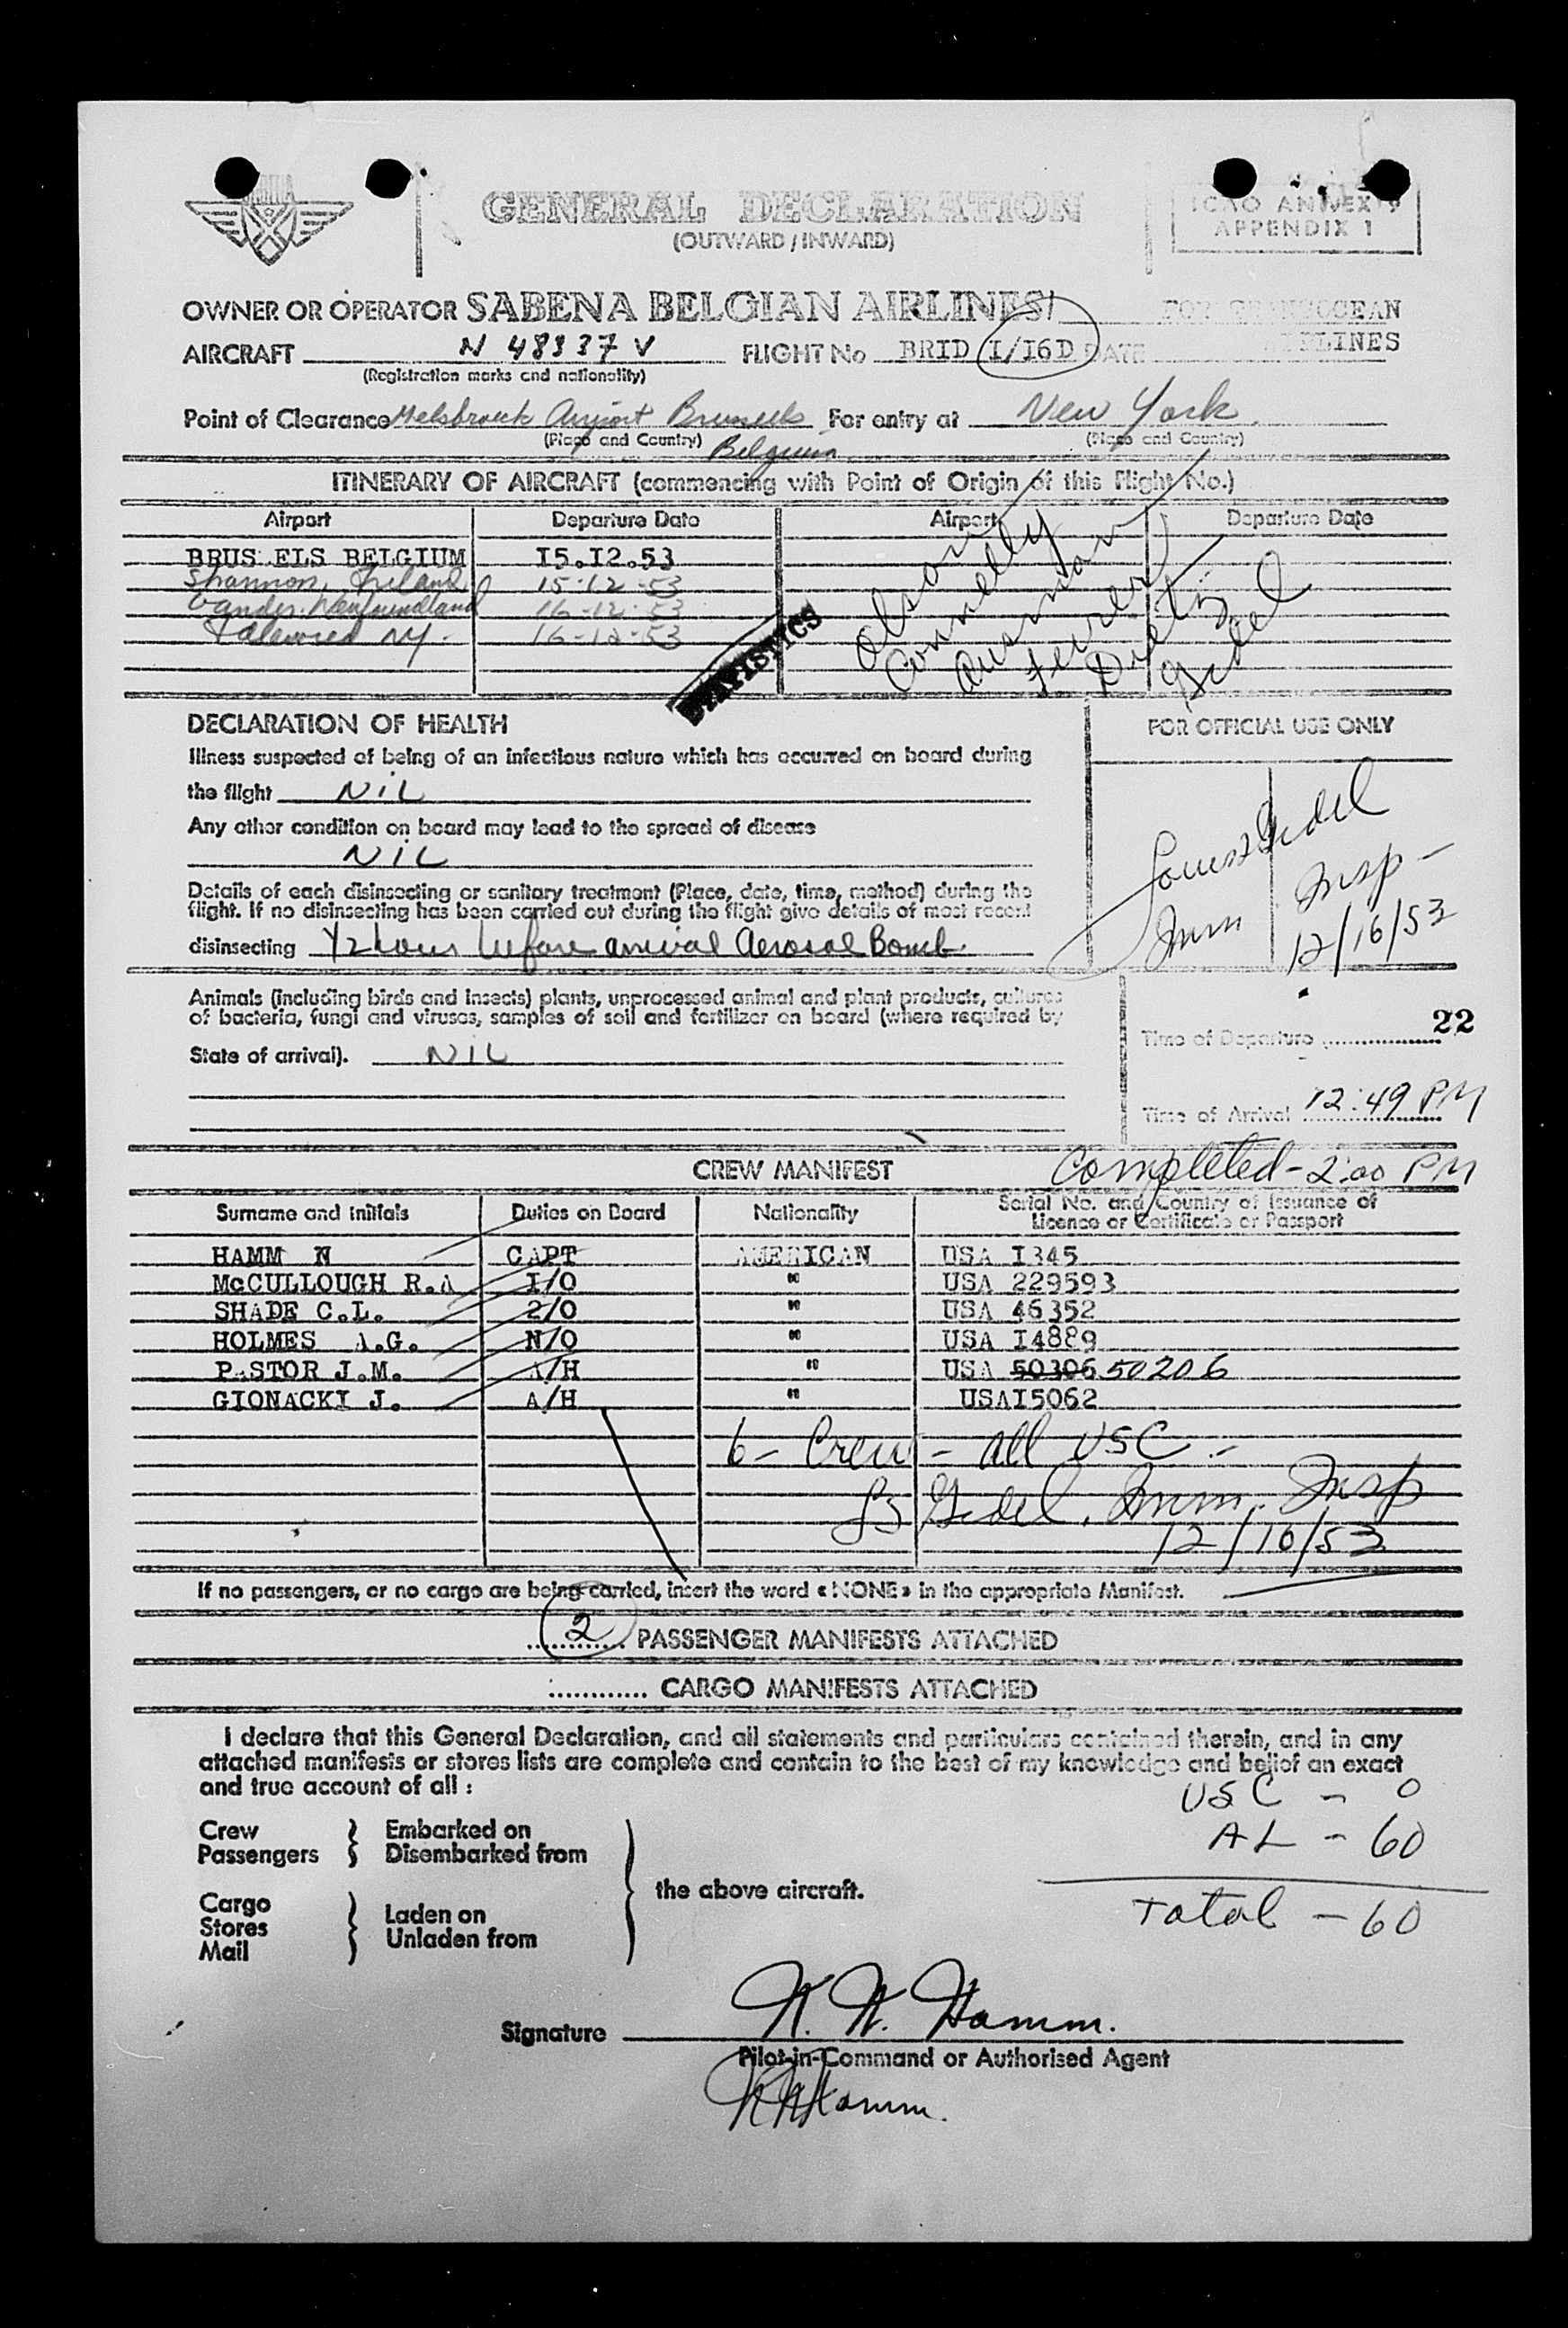 GENERAL DECLARATION
(OUTWARD / INWARD)
ICAO ANNEX 9
APPENDIX 1
OWNER OR OPERATOR SABENA BELGIAN AIRLINES FOR TRANSOCEAN
AIRLINES
AIRCRAFT N 48337 V FLIGHT No BRID I/I6D DATE
(Registration marks and nationality)
Point of Clearance Melsbrouk Airport Brussels For entry at New York
(Place and Country) Belgium (Place and Country)
ITINERARY OF AIRCRAFT (commencing with Point of Origin of this Flight No.)
Airport Departure Date Airport Departure Date
BRUS ELS BELGIUM I5.I2.53
Shannon, Ireland 15-12-53
Gander. Newfoundland 16-12-53
Idlewild NY. 16-12-53
STATISTICS
Olson
Connelly
Dietz
Gedel
DECLARATION OF HEALTH
FOR OFFICIAL USE ONLY
Illness suspected of being of an infectious nature which has occurred on board during
the flight NIL
Any other condition on board may lead to the spread of disease
NIL
Details of each disinsecting or sanitary treatment (Place, date, time, method) during the
flight. If no disinsecting has been carried out during the flight give details of most recent
disinsecting 1/2 hour before arrival Aerosol Bomb
Gedel
Imm Insp -
12/16/53
Animals (including birds and insects) plants, unprocessed animal and plant products, cultures
of bacteria, fungi and viruses, samples of soil and fertilizer on board (where required by
State of arrival). NIL
Time of Departure 22
Time of Arrival 12:49 PM
Completed - 2:00 PM
CREW MANIFEST
Surname and Initials Duties on Board Nationality Serial No. and Country of Issuance of
Licence or Certificate or Passport
HAMM N CAPT AMERICAN USA I345
McCULLOUGH R.A I/O " USA 229593
SHADE C.L. 2/O " USA 46352
HOLMES A.G. N/O " USA I4889
PASTOR J.M. A/H " USA 50306 50206
GIONACKI J. A/H " USAI5062
6 - Crew - all USC -
LS Gedel, Imm. Insp
12/16/53
If no passengers, or no cargo are being carried, insert the word « NONE » in the appropriate Manifest.
2 PASSENGER MANIFESTS ATTACHED
............ CARGO MANIFESTS ATTACHED
I declare that this General Declaration, and all statements and particulars contained therein, and in any
attached manifests or stores lists are complete and contain to the best of my knowledge and belief an exact
and true account of all :
USC - 0
AL - 60
Total - 60
Crew
Passengers
Embarked on
Disembarked from
Cargo
Stores
Mail
Laden on
Unladen from
the above aircraft.
Signature N. N. Hamm.
Pilot-in-Command or Authorised Agent
NN Hamm.